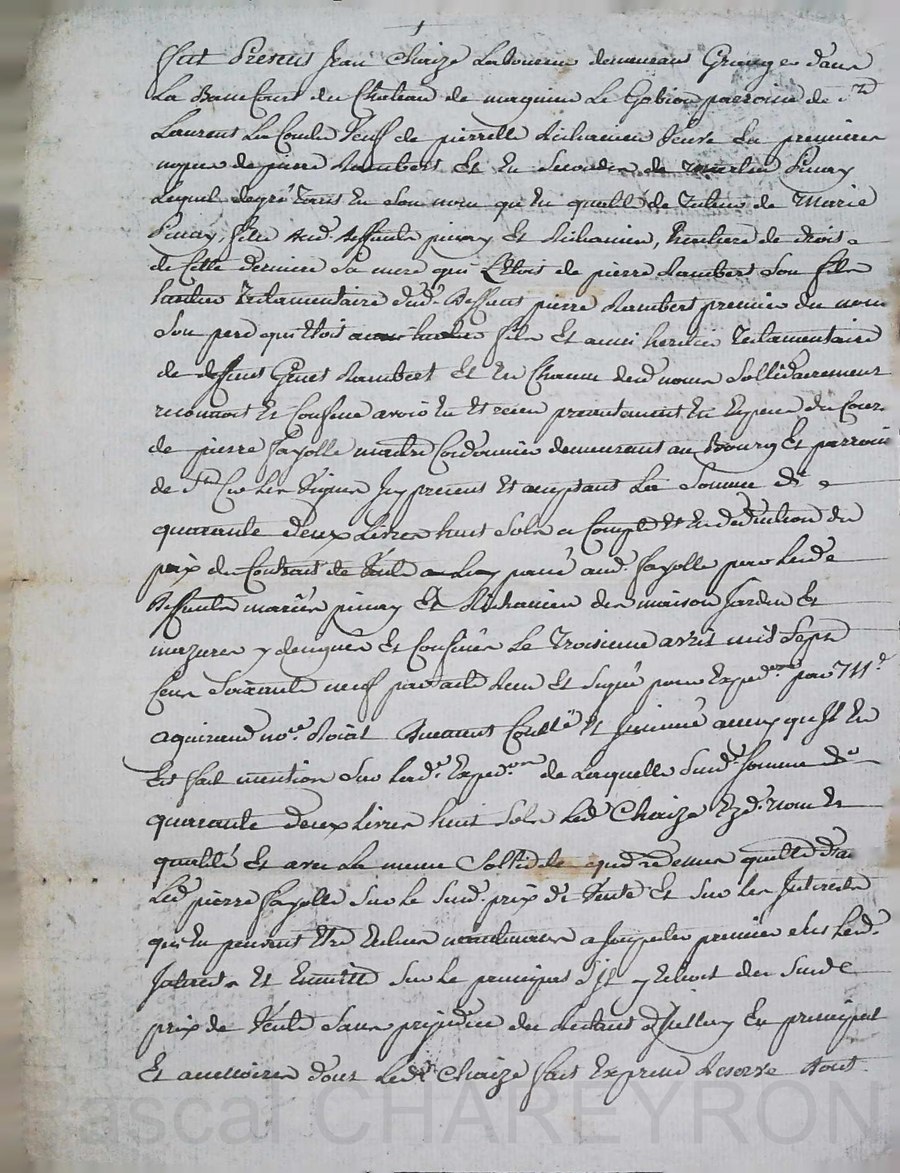 fut Present Jean Chaize Laboureur demeurant Granger dans
La Basse Cour du Chateau de magnieu Le Gabion parroisse de St
Laurent La Conche Veuf de pierrette Richarme Veuve en premieres
nopces de pierre Rambert Et En secondes de Pinay
Lequel de gré tant En son nom qu'En qualité de Tuteur de Marie
Pinay fille aud. deffunts pinay Et Richarme, heritiere de droit
de Cette derniere sa mere qui L'Etoit de pierre Rambert son fils
heritier Testamentaire dud. deffunt pierre Rambert premier du nom
son pere qui Etoit fils Et aussi heritier Testamentaire
de deffunt Genet Rambert Et En Chacun desd noms sollidairement
reconnoit Et Confesse avoir Eu Et receu presentement En Especes du Cours
de pierre fayolle maitre Cordonnier demeurant au Bourg Et parroisse
de St Cir Les Vignes Icy present Et aceptant La somme de
quarante deux Livres huit sols a Compte Et En deduction du
prix du Contrat de Vente passé aud. fayolle par Lesd
deffunts mariés pinay Et Richarme des maison Jardin Et
mazures y designés Et Confinés Le Troisieme avril mil sept
Cent soixante neuf par acte Receu Et signé par Exped.on par M.e
aguiraud no.re Roial duement Contllé Et Insinué ainsy qu'Il En
Est fait mention sur Lesd. Exped.on de Laquelle susd. somme de
quarante deux Livres huit sols Led Chaize Ezd. nom Et
qualité Et avec La meme sollidité quitte
Led pierre fayolle sur Le susd. prix de Vente Et sur Les Interests
qui En peuvent Etre Echus a Imputer premier Lesd.
Interets Et Ensuitte sur Le principal s'Il y Echoit du susd
prix de Vente sans prejudice du Restant d'Icelluy En principal
Et accessoires dont Led Chaize fait Expresse Reserve dont
ascal CHAREYRON